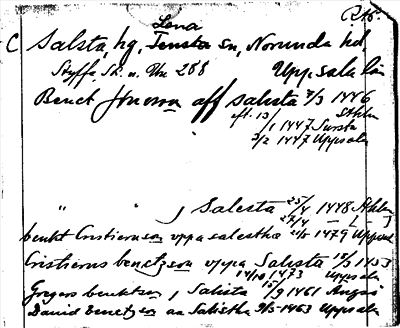 Rtb.
Lena
C Salsta, hg, Tensta sn, Norunda hd,
Styffe, Sk. u. Un 288 Uppsala län
Benct Jönsson aff salista 7/3 1446
Sthlm
eft. 13/1 1447 Sursta
3/2 1447 Uppsala
" " , Salesta 25/4 1448 Sthlm
benkt Cristiernson uppa salestha 21/5 1479 Uppsal
Cristierns benctzson uppa Salista 1453
14/10 1473 Uppsala
Gregers benchtson, Salista 15/9 1461
David Benctzson aa Salistha 9/5 1463 Uppsala